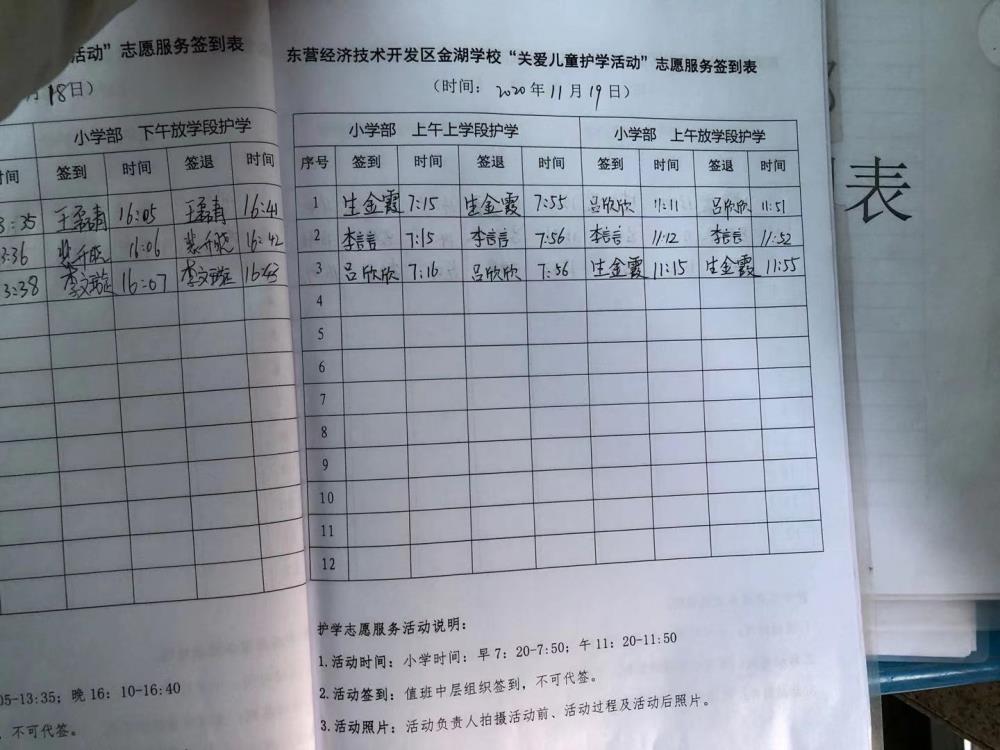 活动”志愿服务签到表
月18日）
小学部 下午放学段护学
时间 签到 时间 签退 时间
3:35 16:05 16:41
3:36 16:06 16:42
3:38 李文璇 16:07 李文璇 16:43
05-13:35；晚16：10-16:40
，不可代签。
东营经济技术开发区金湖学校“关爱儿童护学活动”志愿服务签到表
（时间：2020年11月19日）
小学部 上午上学段护学 小学部 上午放学段护学
序号 签到 时间 签退 时间 签到 时间 签退 时间
1 生金霞 7:15 生金霞 7:55 吕欣欣 11:11 吕欣欣 11:51
2 李言言 7:15 李言言 7:56 李言言 11:12 李言言 11:52
3 吕欣欣 7:16 吕欣欣 7:56 生金霞 11:15 生金霞 11:55
4
5
6
7
8
9
10
11
12
护学志愿服务活动说明：
1.活动时间：小学时间：早7：20-7:50；午11：20-11:50
2.活动签到：值班中层组织签到，不可代签。
3.活动照片：活动负责人拍摄活动前、活动过程及活动后照片。
表